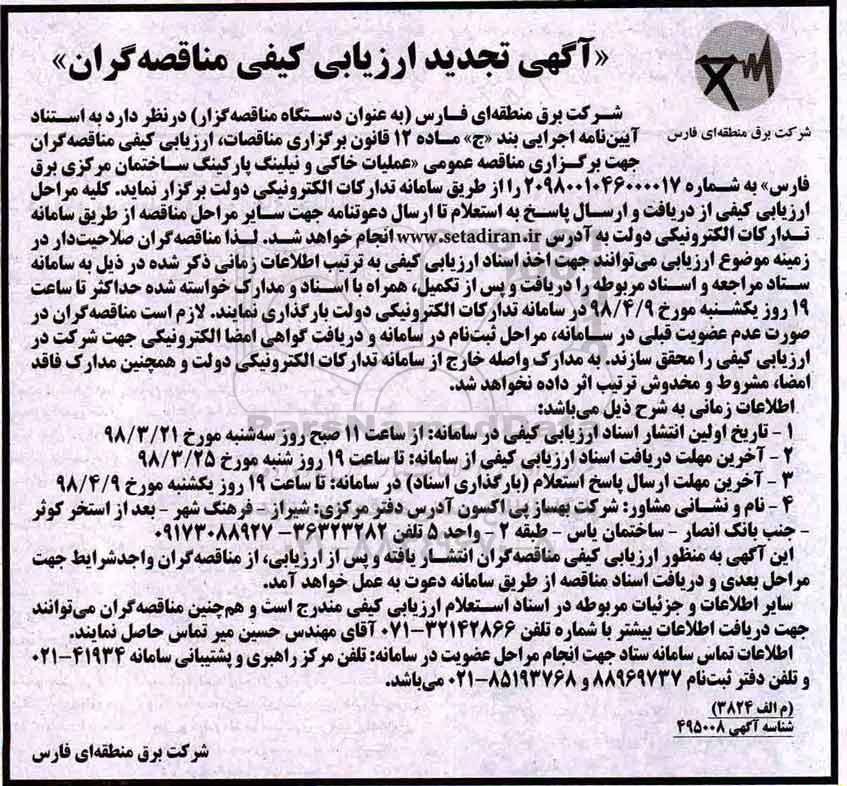 «آگهی تجدید ارزیابی کیفی مناقصه‌گران»
شرکت برق منطقه‌ای فارس
شرکت برق منطقه‌ای فارس (به عنوان دستگاه مناقصه‌گزار) درنظر دارد به استناد
آیین‌نامه اجرایی بند «ج» ماده ۱۲ قانون برگزاری مناقصات، ارزیابی کیفی مناقصه‌گران
جهت برگزاری مناقصه عمومی «عملیات خاکی و نیلینگ پارکینگ ساختمان مرکزی برق
فارس» به شماره ۲۰۹۸۰۰۱۰۴۶۰۰۰۰۱۷ را از طریق سامانه تدارکات الکترونیکی دولت برگزار نماید. کلیه مراحل
ارزیابی کیفی از دریافت و ارسال پاسخ به استعلام تا ارسال دعوتنامه جهت سایر مراحل مناقصه از طریق سامانه
تدارکات الکترونیکی دولت به آدرس www.setadiran.ir انجام خواهد شد. لذا مناقصه‌گران صلاحیت‌دار در
زمینه موضوع ارزیابی می‌توانند جهت اخذ اسناد ارزیابی کیفی به ترتیب اطلاعات زمانی ذکر شده در ذیل به سامانه
ستاد مراجعه و اسناد مربوطه را دریافت و پس از تکمیل، همراه با اسناد و مدارک خواسته شده حداکثر تا ساعت
۱۹ روز یکشنبه مورخ ۹۸/۴/۹ در سامانه تدارکات الکترونیکی دولت بارگذاری نمایند. لازم است مناقصه‌گران در
صورت عدم عضویت قبلی در سامانه، مراحل ثبت‌نام در سامانه و دریافت گواهی امضا الکترونیکی جهت شرکت در
ارزیابی کیفی را محقق سازند. به مدارک واصله خارج از سامانه تدارکات الکترونیکی دولت و همچنین مدارک فاقد
امضا، مشروط و مخدوش ترتیب اثر داده نخواهد شد.
اطلاعات زمانی به شرح ذیل می‌باشد:
۱ - تاریخ اولین انتشار اسناد ارزیابی کیفی در سامانه: از ساعت ۱۱ صبح روز سه‌شنبه مورخ ۹۸/۳/۲۱
۲ - آخرین مهلت دریافت اسناد ارزیابی کیفی از سامانه: تا ساعت ۱۹ روز شنبه مورخ ۹۸/۳/۲۵
۳ - آخرین مهلت ارسال پاسخ استعلام (بارگذاری اسناد) در سامانه: تا ساعت ۱۹ روز یکشنبه مورخ ۹۸/۴/۹
۴ - نام و نشانی مشاور: شرکت بهساز پی اکسون آدرس دفتر مرکزی: شیراز - فرهنگ شهر - بعد از استخر کوثر
- جنب بانک انصار - ساختمان یاس - طبقه ۲ - واحد ۵ تلفن ۳۶۳۲۳۲۸۲- ۰۹۱۷۳۰۸۸۹۲۷
این آگهی به منظور ارزیابی کیفی مناقصه‌گران انتشار یافته و پس از ارزیابی، از مناقصه‌گران واجدشرایط جهت
مراحل بعدی و دریافت اسناد مناقصه از طریق سامانه دعوت به عمل خواهد آمد.
سایر اطلاعات و جزئیات مربوطه در اسناد استعلام ارزیابی کیفی مندرج است و هم‌چنین مناقصه‌گران می‌توانند
جهت دریافت اطلاعات بیشتر با شماره تلفن ۳۲۱۴۲۸۶۶-۰۷۱ آقای مهندس حسین میر تماس حاصل نمایند.
اطلاعات تماس سامانه ستاد جهت انجام مراحل عضویت در سامانه: تلفن مرکز راهبری و پشتیبانی سامانه ۴۱۹۳۴-۰۲۱
و تلفن دفتر ثبت‌نام ۸۸۹۶۹۷۳۷ و ۸۵۱۹۳۷۶۸-۰۲۱ می‌باشد.
(م الف ۳۸۲۴)
شناسه آگهی ۴۹۵۰۰۸
شرکت برق منطقه‌ای فارس
ParsNamadData